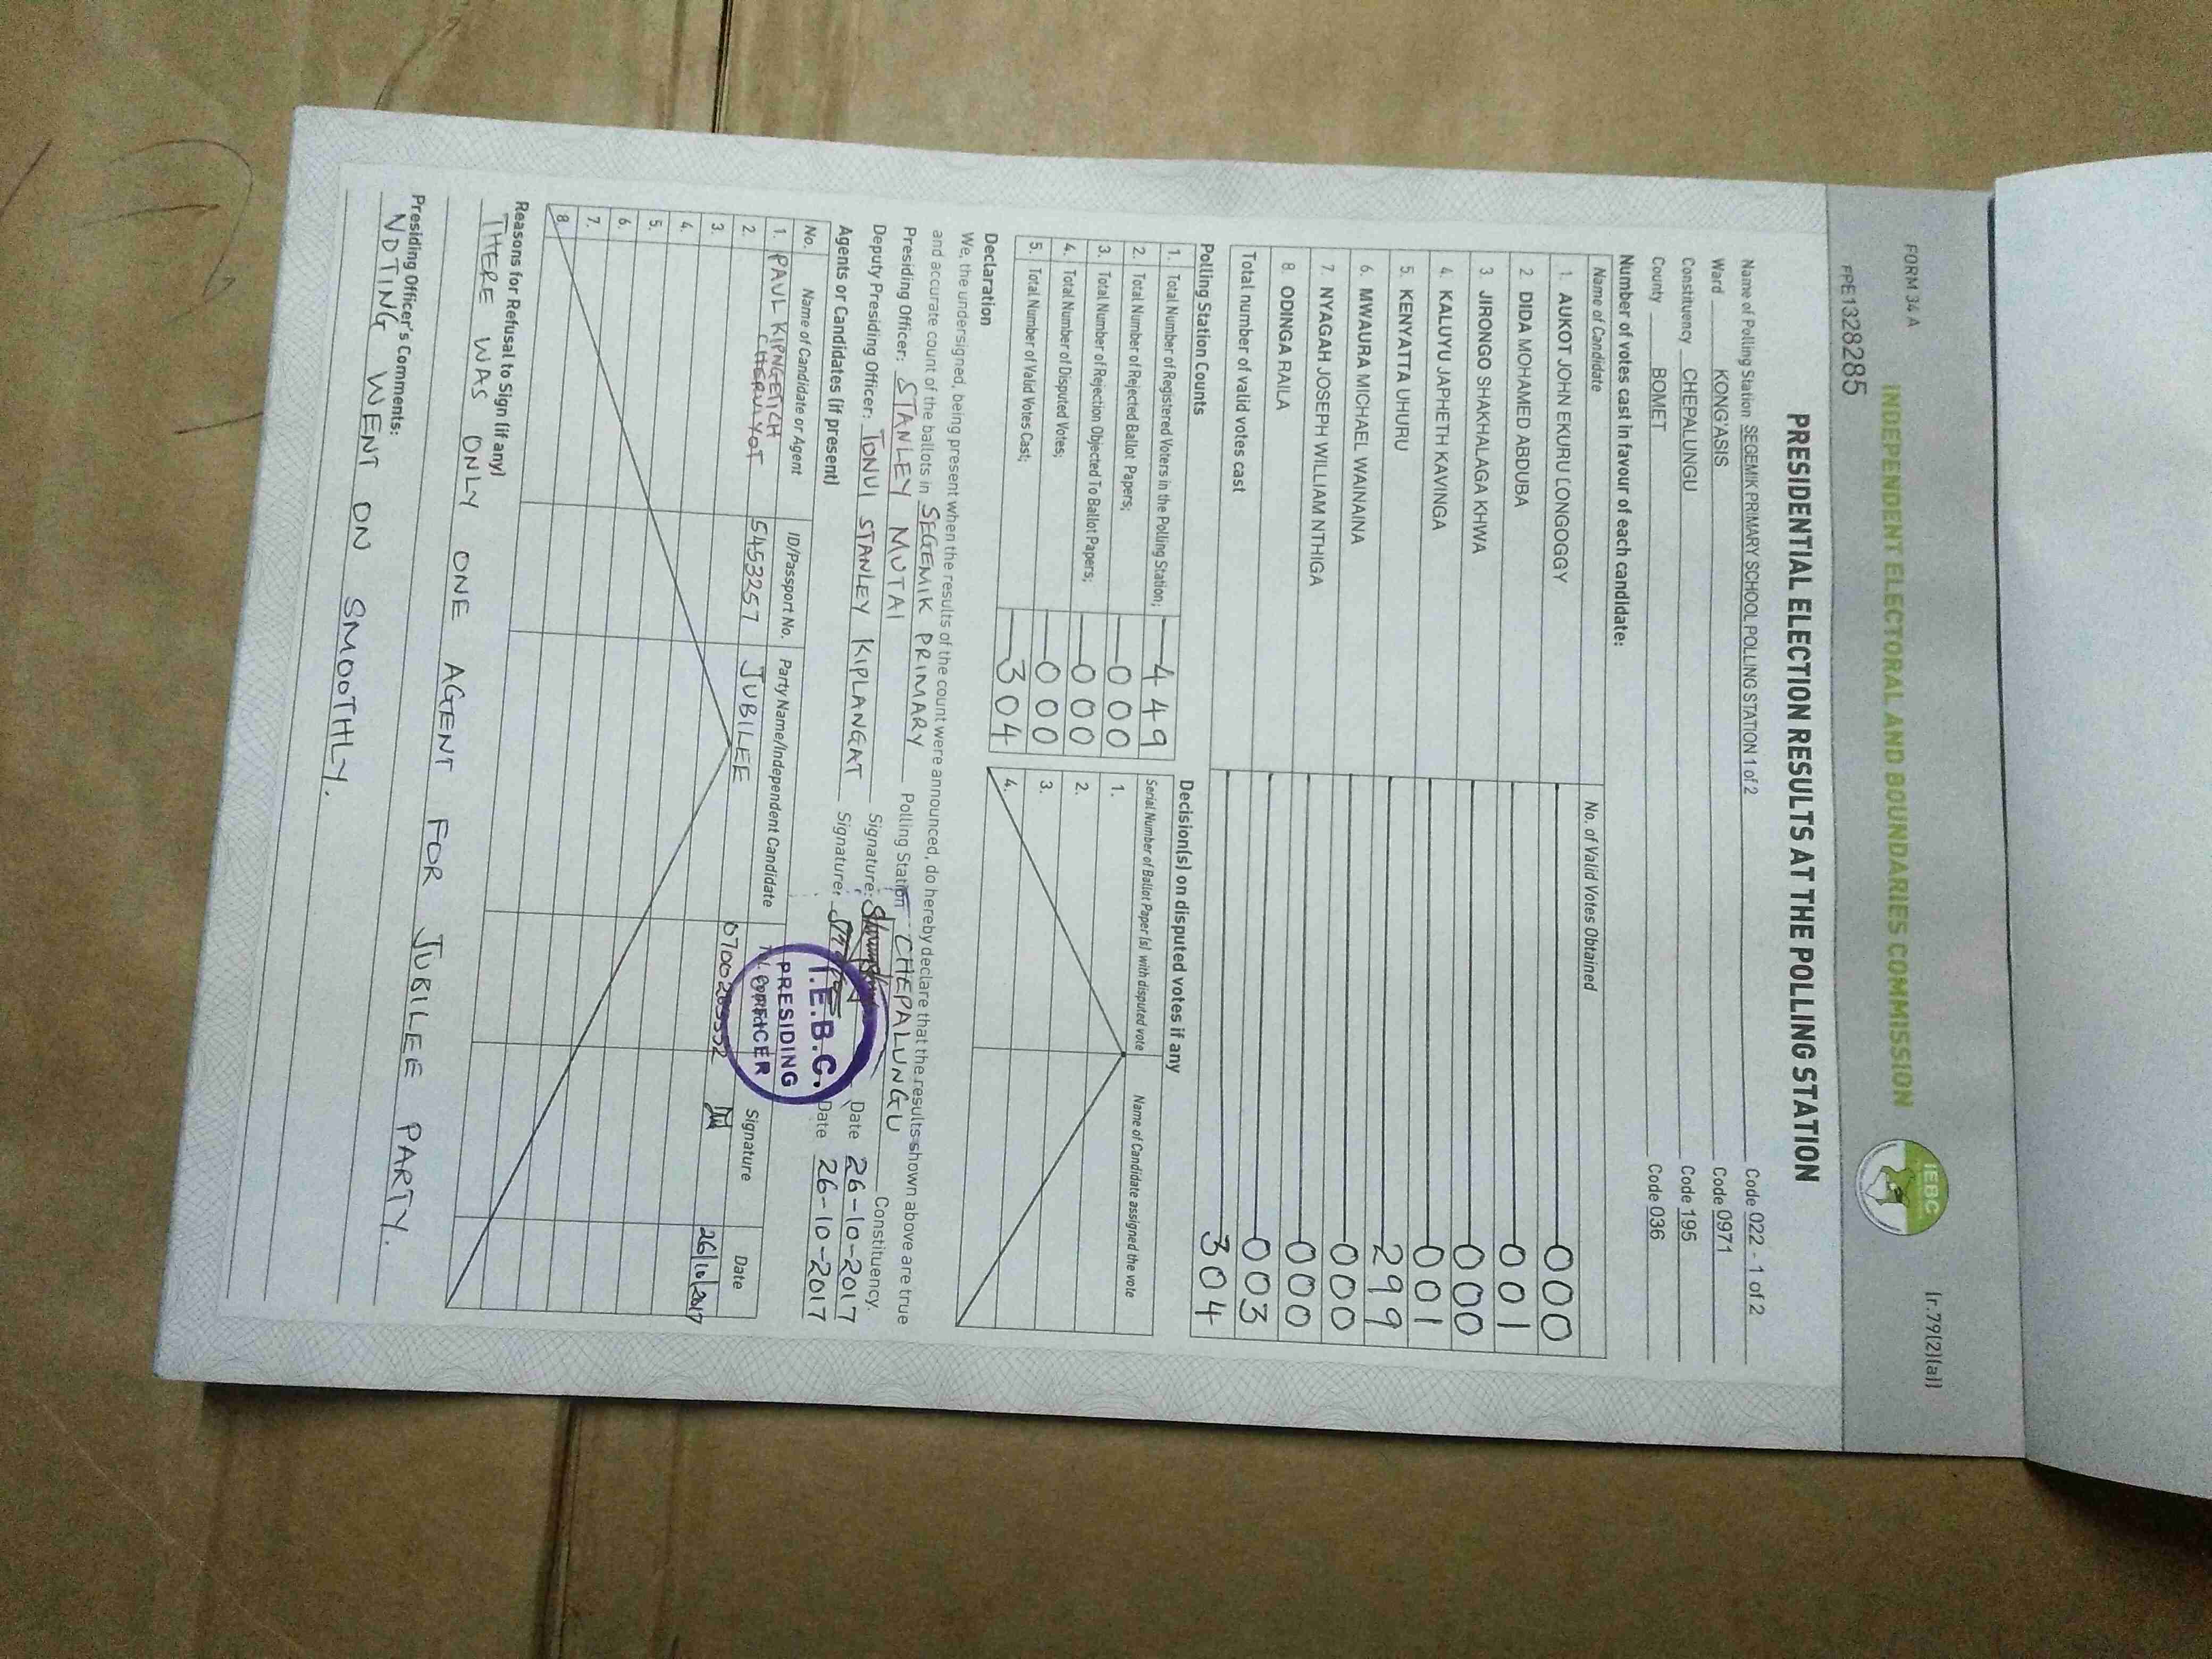 FORM 34 A
[r.79(2)(a)]
FPE1328285
INDEPENDENT ELECTORAL AND BOUNDARIES COMMISSION
IEBC
PRESIDENTIAL ELECTION RESULTS AT THE POLLING STATION
Name of Polling Station SEGEMIK PRIMARY SCHOOL POLLING STATION 1 of 2 Code 022 - 1 of 2
Ward KONG'ASIS Code 0971
Constituency CHEPALUNGU Code 195
County BOMET Code 036
Number of votes cast in favour of each candidate:
Name of Candidate No. of Valid Votes Obtained
1. AUKOT JOHN EKURU LONGOGGY 000
2. DIDA MOHAMED ABDUBA 001
3. JIRONGO SHAKHALAGA KHWA 000
4. KALUYU JAPHETH KAVINGA 001
5. KENYATTA UHURU 299
6. MWAURA MICHAEL WAINAINA 000
7. NYAGAH JOSEPH WILLIAM NTHIGA 000
8. ODINGA RAILA 003
Total number of valid votes cast 304
Polling Station Counts
1. Total Number of Registered Voters in the Polling Station; 449
2. Total Number of Rejected Ballot Papers; 000
3. Total Number of Rejection Objected To Ballot Papers; 000
4. Total Number of Disputed Votes; 000
5. Total Number of Valid Votes Cast; 304
Decision(s) on disputed votes if any
Serial Number of Ballot Paper (s) with disputed vote Name of Candidate assigned the vote
1.
2.
3.
4.
Declaration
We, the undersigned, being present when the results of the count were announced, do hereby declare that the results shown above are true
and accurate count of the ballots in SEGEMIK PRIMARY Polling Station CHEPALUNGU Constituency.
Presiding Officer: STANLEY MUTAI Signature: Date 26-10-2017
Deputy Presiding Officer: TONUI STANLEY KIPLANGAT Signature: Date 26-10-2017
Agents or Candidates (if present)
I.E.B.C.
PRESIDING
OFFICER
No. Name of Candidate or Agent ID/Passport No. Party Name/Independent Candidate Signature Date
1. PAUL KIPNGETICH CHERUIYOT 5453257 JUBILEE 26/10/2017
2.
3.
4.
5.
6.
7.
8.
Reasons for Refusal to Sign (if any)
THERE WAS ONLY ONE AGENT FOR JUBILEE PARTY.
Presiding Officer's Comments:
NOTING WENT ON SMOOTHLY.